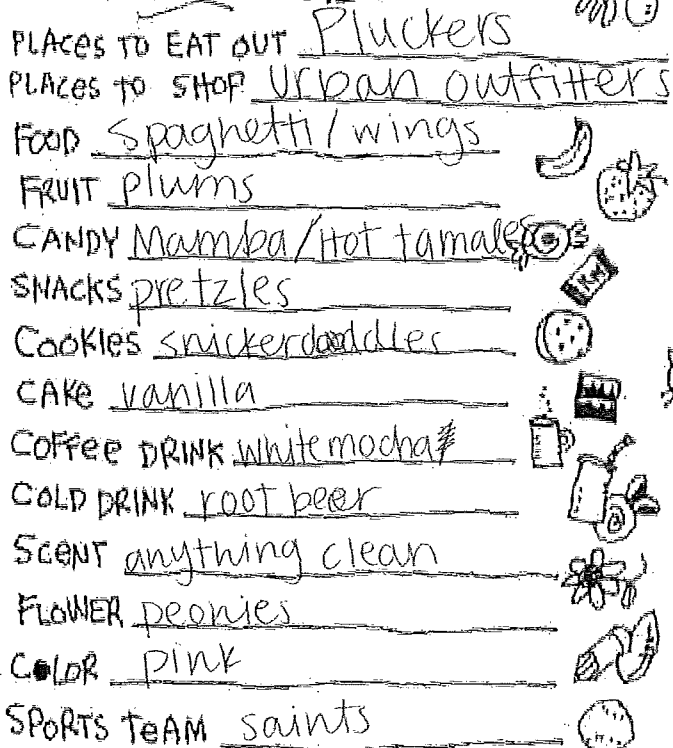 PLACES TO EAT OUT Pluckers
PLACES TO SHOP Urban outfitters
FOOD Spaghetti/wings
FRUIT plums
CANDY Mamba/Hot tamales
SNACKS pretzles
Cookies snickerdooddles
CAKE vanilla
COFFEE DRINK white mocha
COLD DRINK root beer
SCENT anything clean
FLOWER peonies
COLOR pink
SPORTS TEAM saints